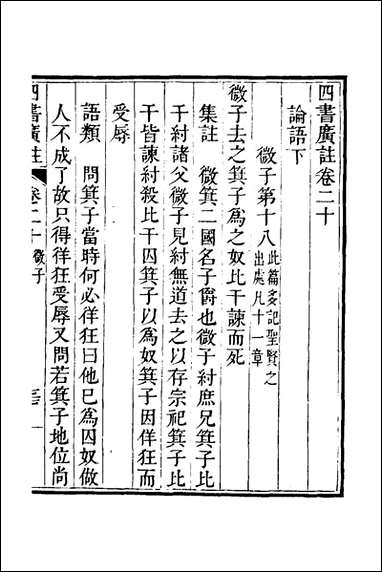 四書廣註卷二十
論語下
微子第十八此篇多記聖賢之
出處凡十一章
微子去之箕子爲之奴比干諫而死
集註　微箕二國名子爵也微子紂庶兄箕子比
干紂諸父微子見紂無道去之以存宗祀箕子比
干皆諫紂殺比干囚箕子以爲奴箕子因佯狂而
受辱
語類　問箕子當時何必佯狂曰他已爲囚奴做
人不成了故只得徉狂受辱又問若箕子地位尚
四書廣註
卷二十　微子